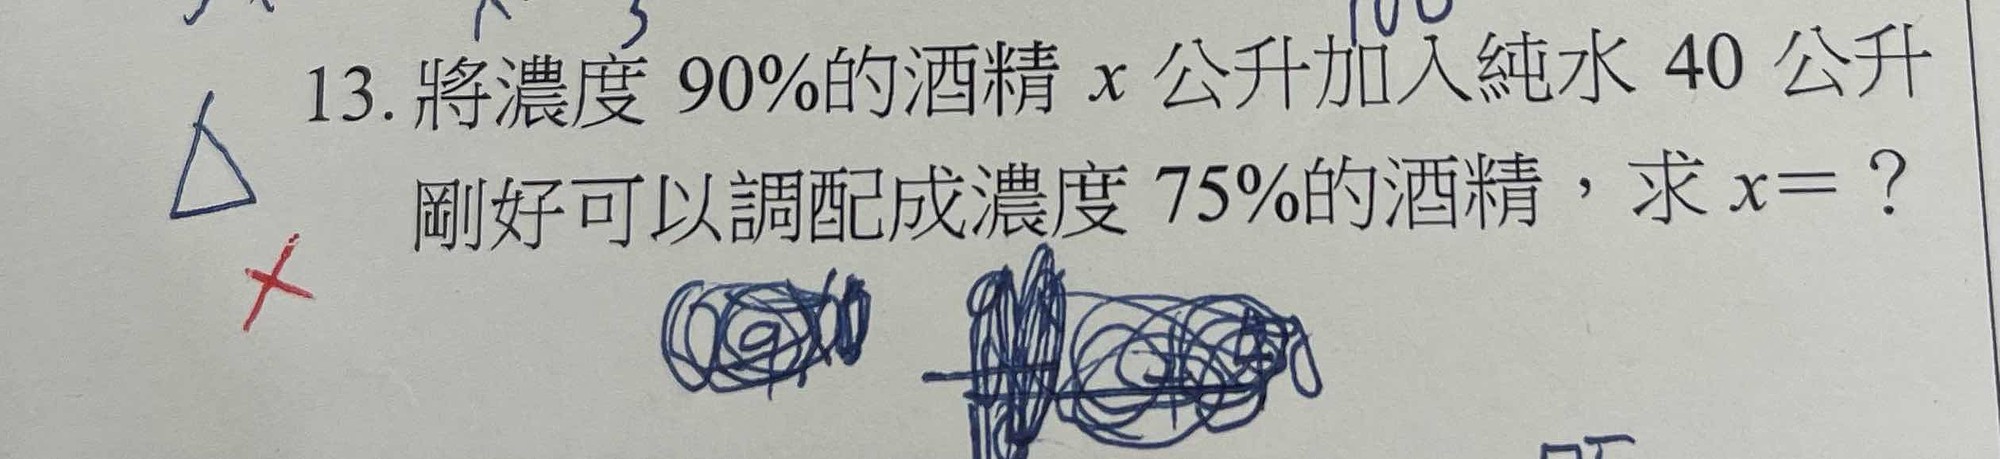 100
13. 將濃度 90%的酒精 x 公升加入純水 40 公升
剛好可以調配成濃度 75%的酒精，求 x=？